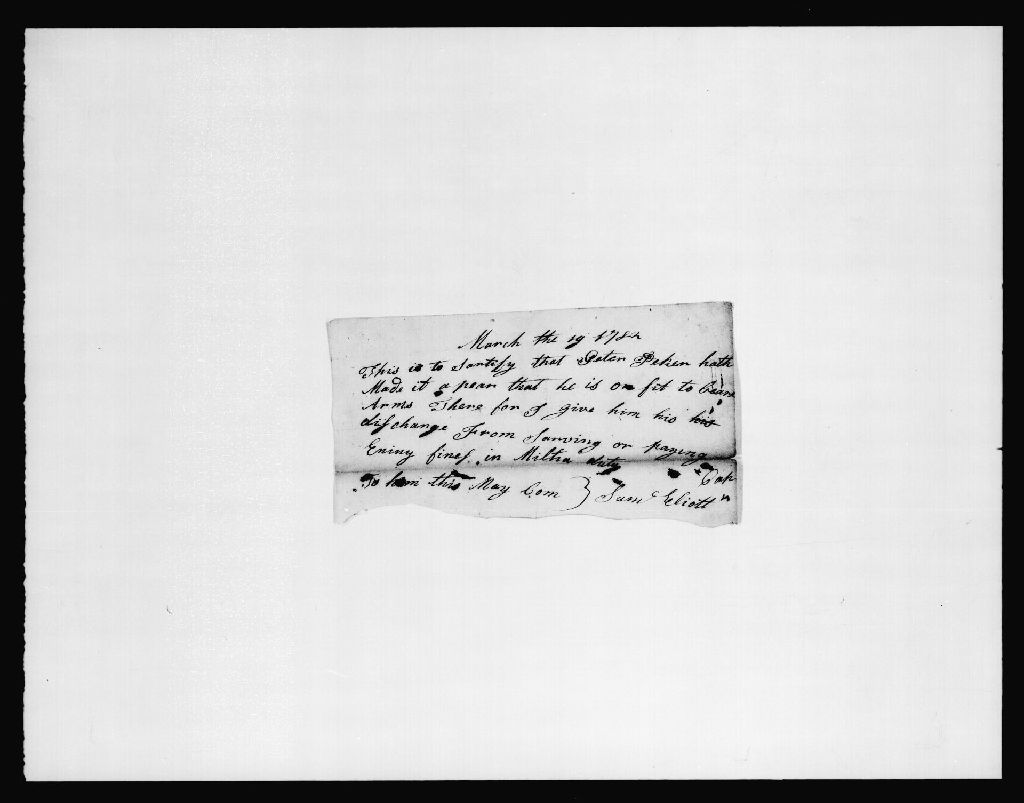 March the 19 1782
This is to Sartefy that Peter Peken hath
Made it a pear that he is on fit to Beare
Arms There for I give him his his
disscharge From Sarving or paying
Eniny fines in Miltia duty
To him this May Com } Sam Eliott Capn